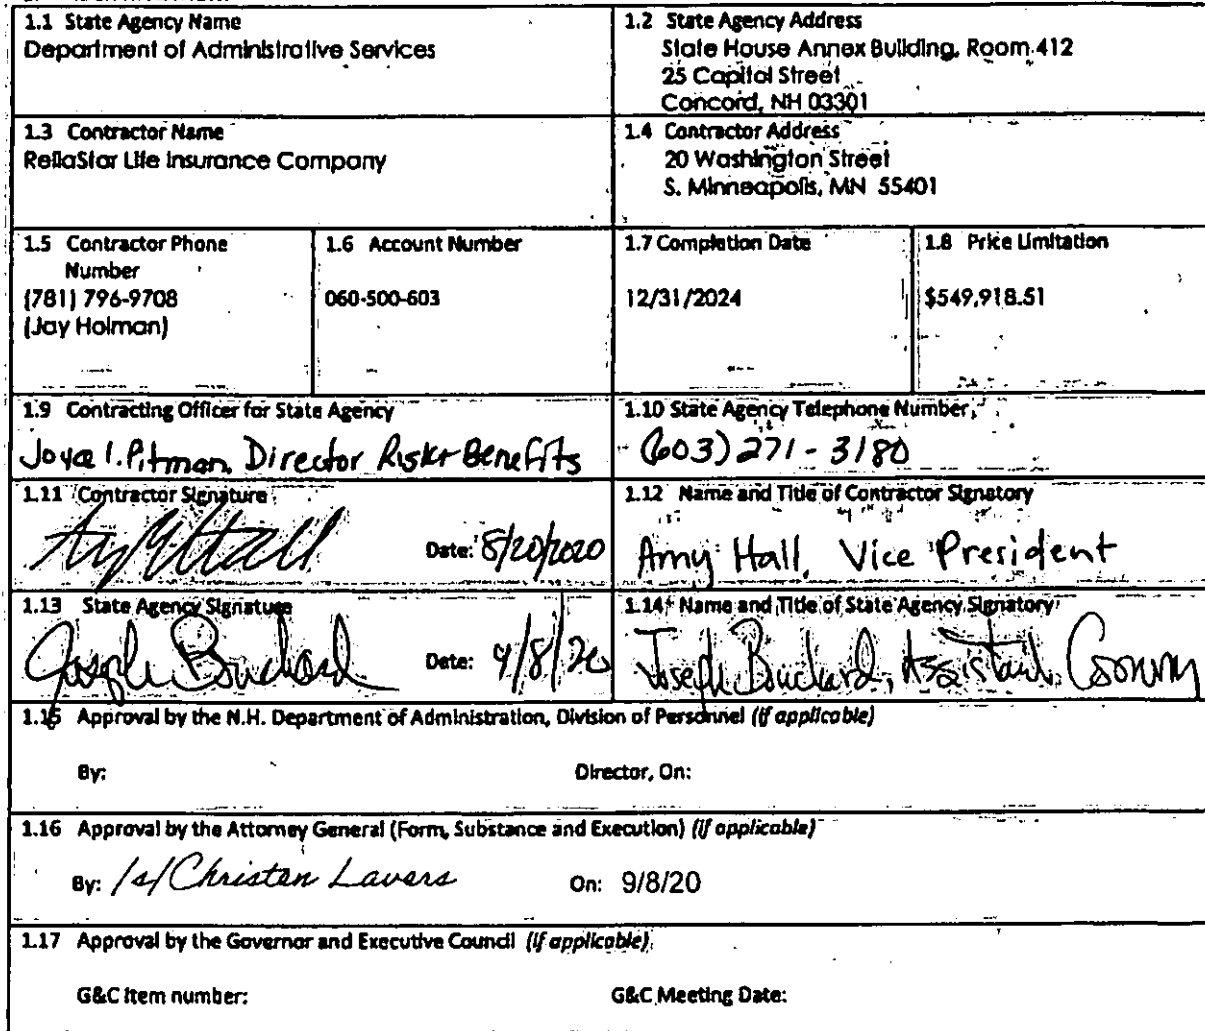 1.1 State Agency Name
Department of Administrative Services
1.2 State Agency Address
State House Annex Building, Room 412
25 Capitol Street
Concord, NH 03301
1.3 Contractor Name
ReliaStar Life Insurance Company
1.4 Contractor Address
20 Washington Street
S. Minneapolis, MN 55401
1.5 Contractor Phone
Number
(781) 796-9708
(Jay Holman)
1.6 Account Number
060-500-603
1.7 Completion Date
12/31/2024
1.8 Price Limitation
$549,918.51
1.9 Contracting Officer for State Agency
Joyce I. Pitman, Director Risk + Benefits
1.10 State Agency Telephone Number
(603) 271-3180
1.11 Contractor Signature
Date: 8/20/2020
1.12 Name and Title of Contractor Signatory
Amy Hall, Vice President
1.13 State Agency Signature
Joseph Bouchard Date: 9/8/20
1.14 Name and Title of State Agency Signatory
Joseph Bouchard, Assistant
1.15 Approval by the N.H. Department of Administration, Division of Personnel (if applicable)
By: Director, On:
1.16 Approval by the Attorney General (Form, Substance and Execution) (if applicable)
By: /s/ Christen Lavers On: 9/8/20
1.17 Approval by the Governor and Executive Council (if applicable)
G&C Item number: G&C Meeting Date: